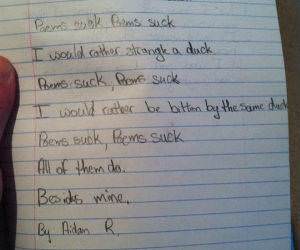 Poems suck, Poems suck
I would rather strangle a duck
Poems suck, Poems suck
I would rather be bitten by the same duck
Poems suck, Poems suck
All of them do.
Besides mine.
By Aidan R.